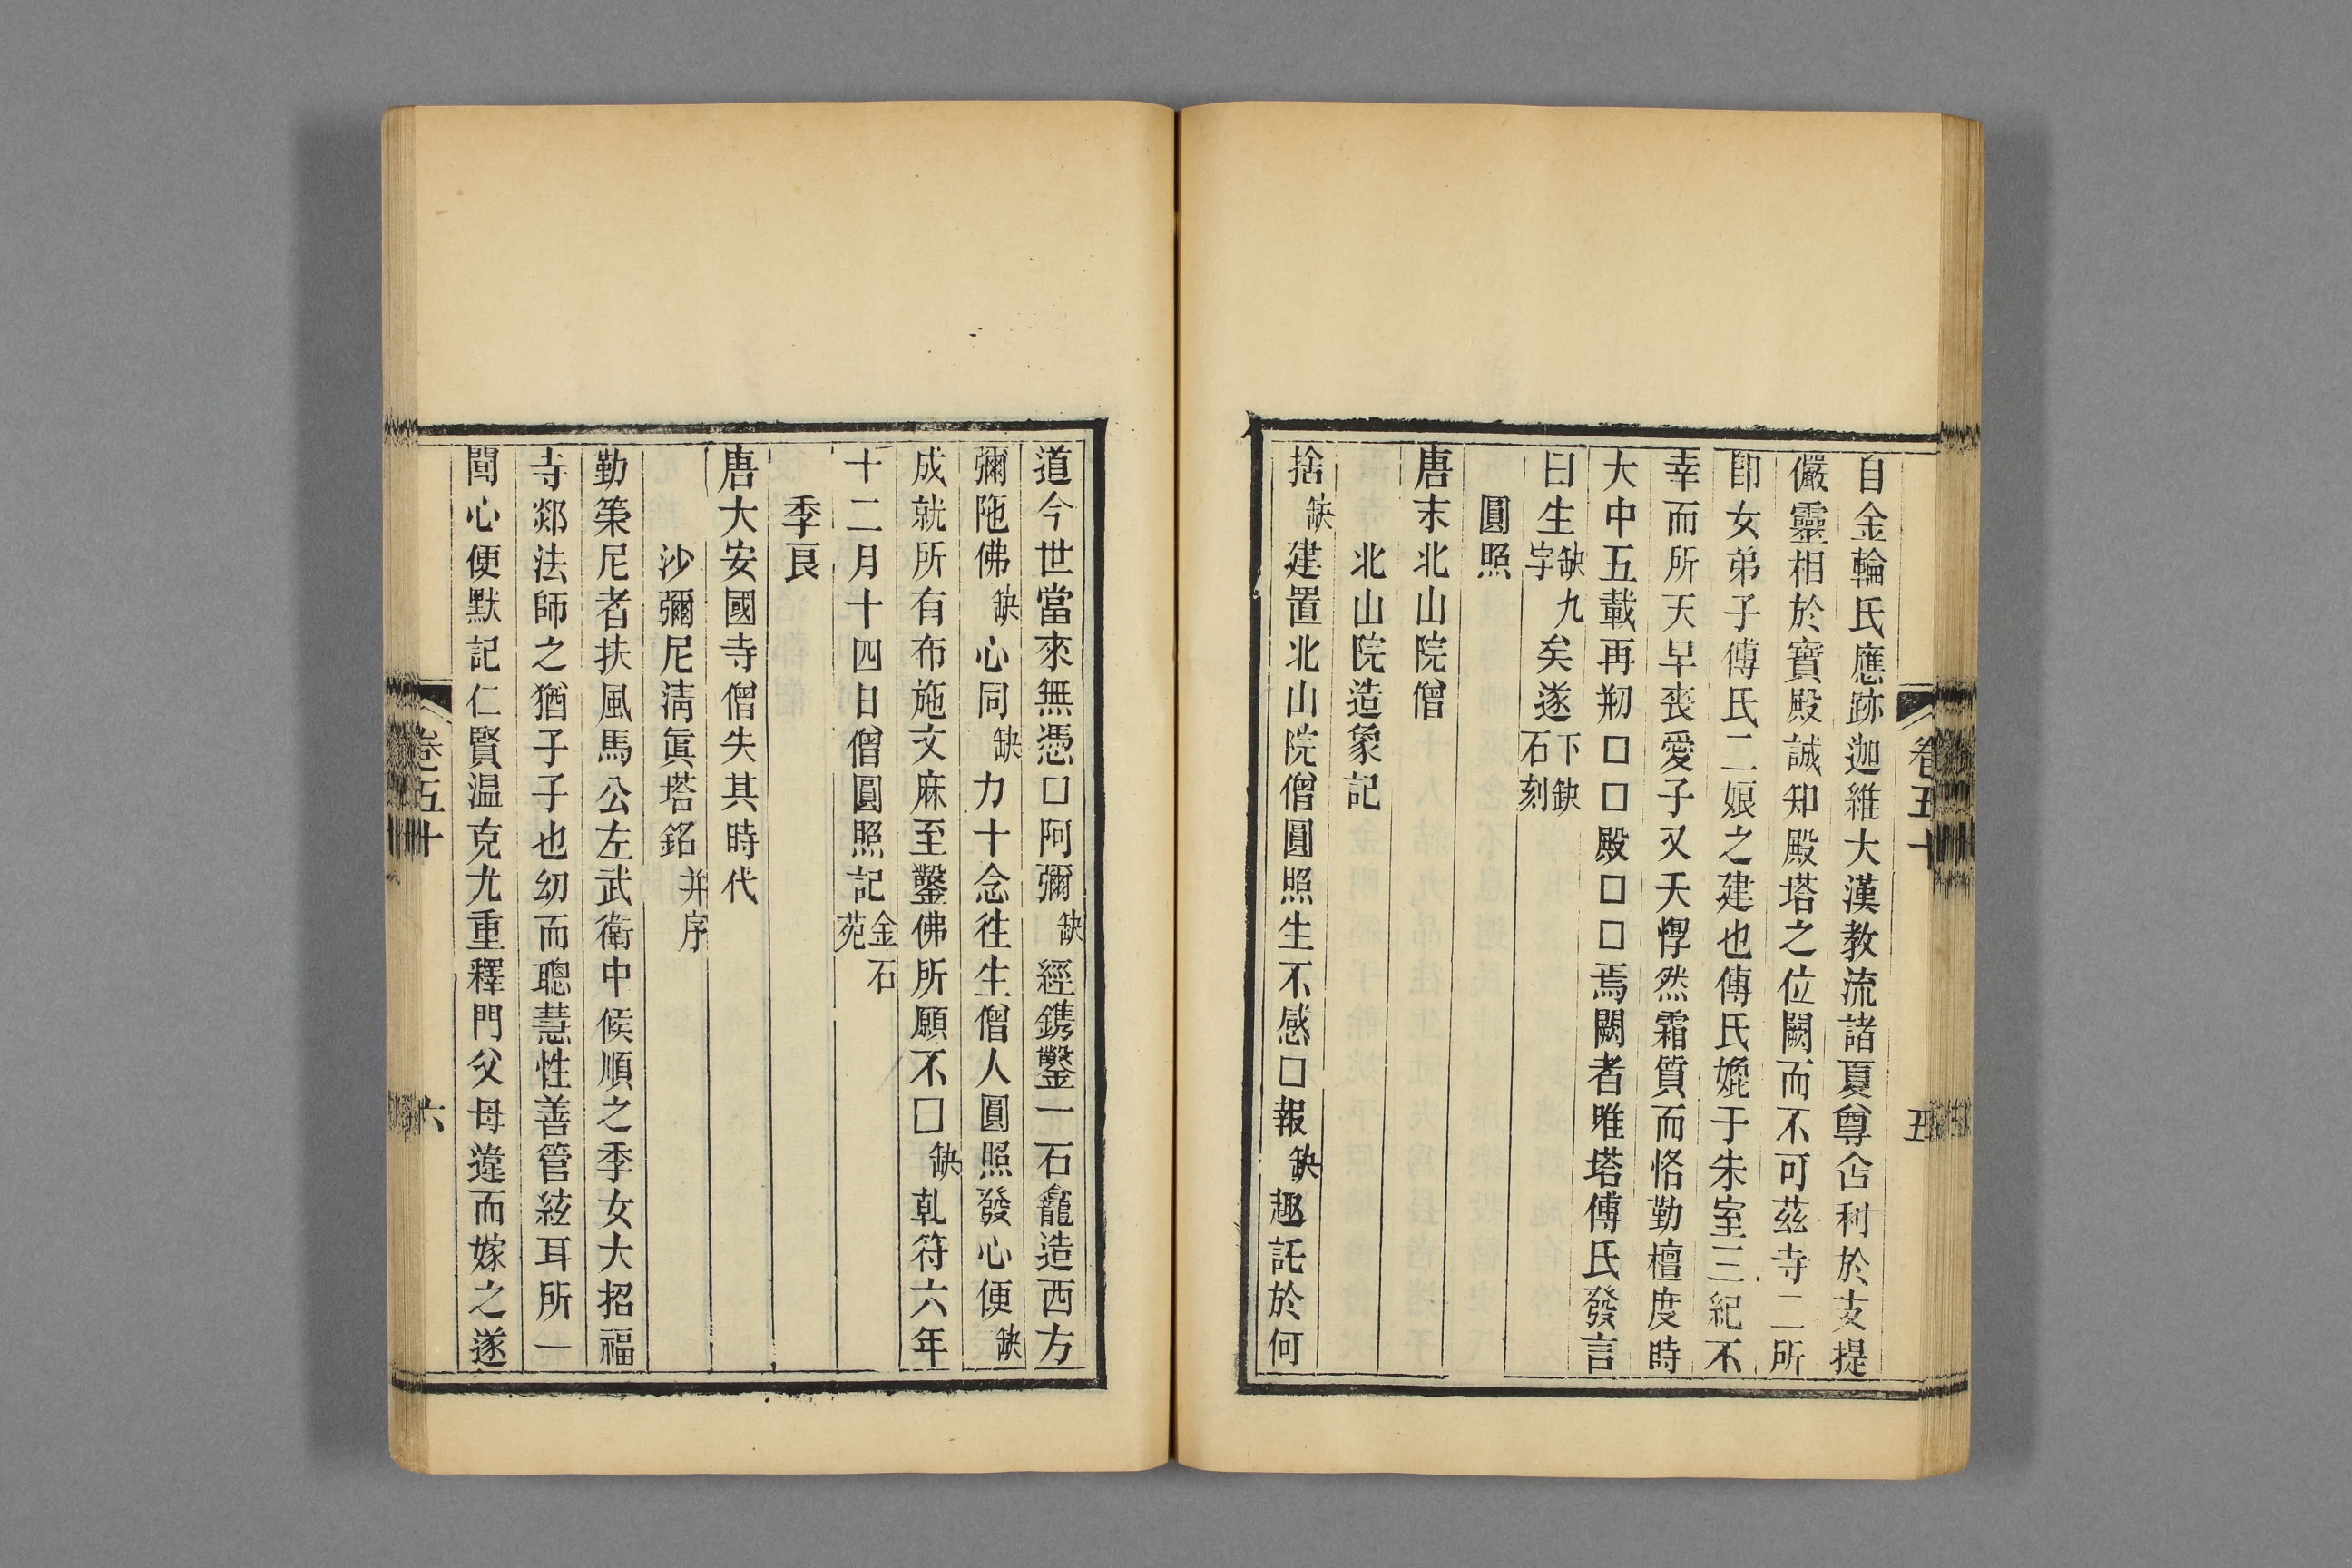 自金輪氏應跡迦維大漢教流諸夏尊㕣利於支提
儼靈相於寶殿誠知殿塔之位闕而不可茲寺二所
卽女弟子傅氏二娘之建也傅氏媲于朱室三紀不
幸而所天早喪愛子又夭惸然霜質而恪勤檀度時
大中五載再剏□□□殿□□□焉闕者唯塔傅氏發言
曰生缺九字矣遂下缺石刻
圓照
唐末北山院僧
北山院造象記
捨缺建置北山院僧圓照生不感□報缺趣託於何
卷五十
五
道今世當來無憑□阿彌缺經鐫鑿一石龕造西方
彌陁佛缺心同缺力十念徃生僧人圓照發心便缺
成就所有布施文麻至鑿佛所願不□缺乹符六年
十二月十四日僧圓照記金石苑
季良
唐大安國寺僧失其時代
沙彌尼淸眞塔銘并序
勤策尼者扶風馬公左武衛中候順之季女大招福
寺郯法師之猶子子也幼而聰慧性善管絃耳所一
聞心便默記仁賢温克尤重釋門父母違而嫁之遂
卷五十
六